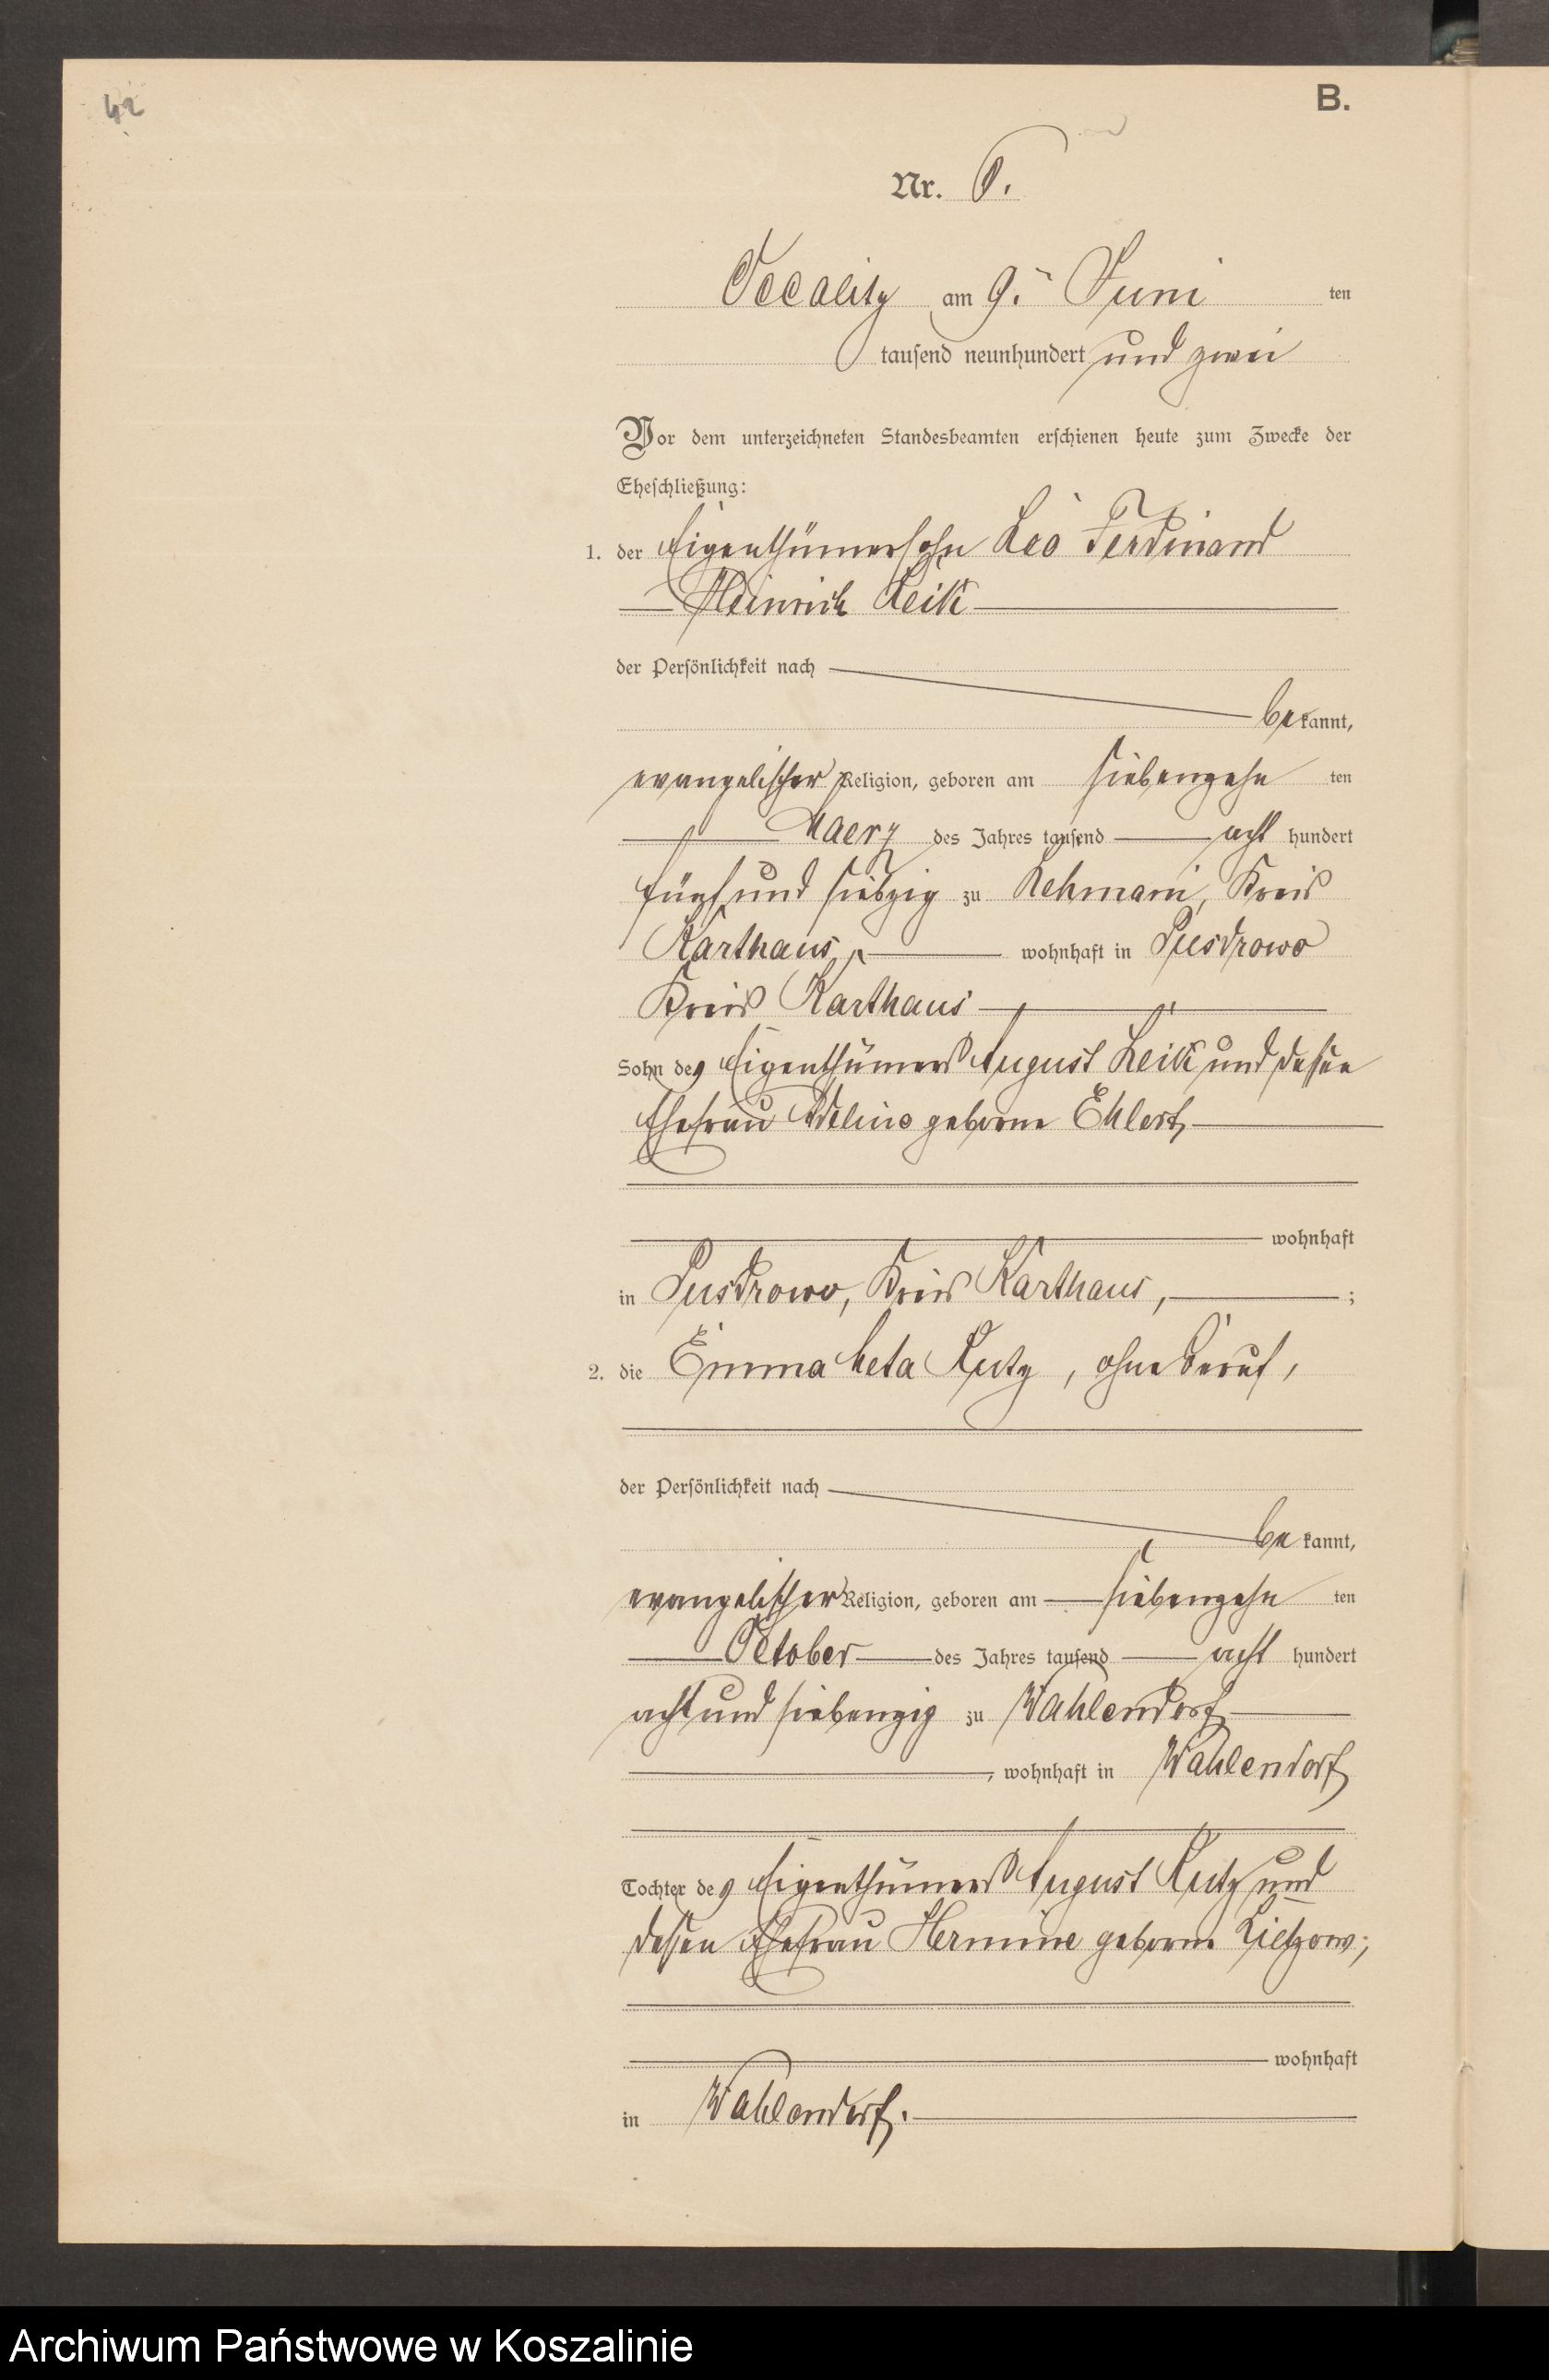 42
B.
Nr. 8.
Occalitz am 9. Juni ten
tausend neunhundert und zwei
Vor dem unterzeichneten Standesbeamten erschienen heute zum Zwecke der
Eheschließung:
1. der Eigenthümersohn Leo Ferdinand
Heinrich Leik
der Persönlichkeit nach
bekannt,
evangelischer Religion, geboren am siebenzehn ten
Maerz des Jahres tausend acht hundert
fünf und siebzig zu Kehmani, Kreis
Karthaus, wohnhaft in Pusdrowo
Kreis Karthaus
Sohn des Eigenthümers August Leik und dessen
Ehefrau geborne Ehlert,
wohnhaft
in Pusdrowo, Kreis Karthaus, ;
2. die Emma Meta Kutz, ohne Beruf,
der Persönlichkeit nach
bekannt,
evangelischer Religion, geboren am siebenzehn ten
October des Jahres tausend acht hundert
acht und siebenzig zu Wahlendorf
, wohnhaft in Wahlendorf
Tochter des Eigenthümers August Kutz und
dessen Ehefrau Hermine geborne Lietzow;
wohnhaft
in Wahlendorf.
Archiwum Państwowe w Koszalinie